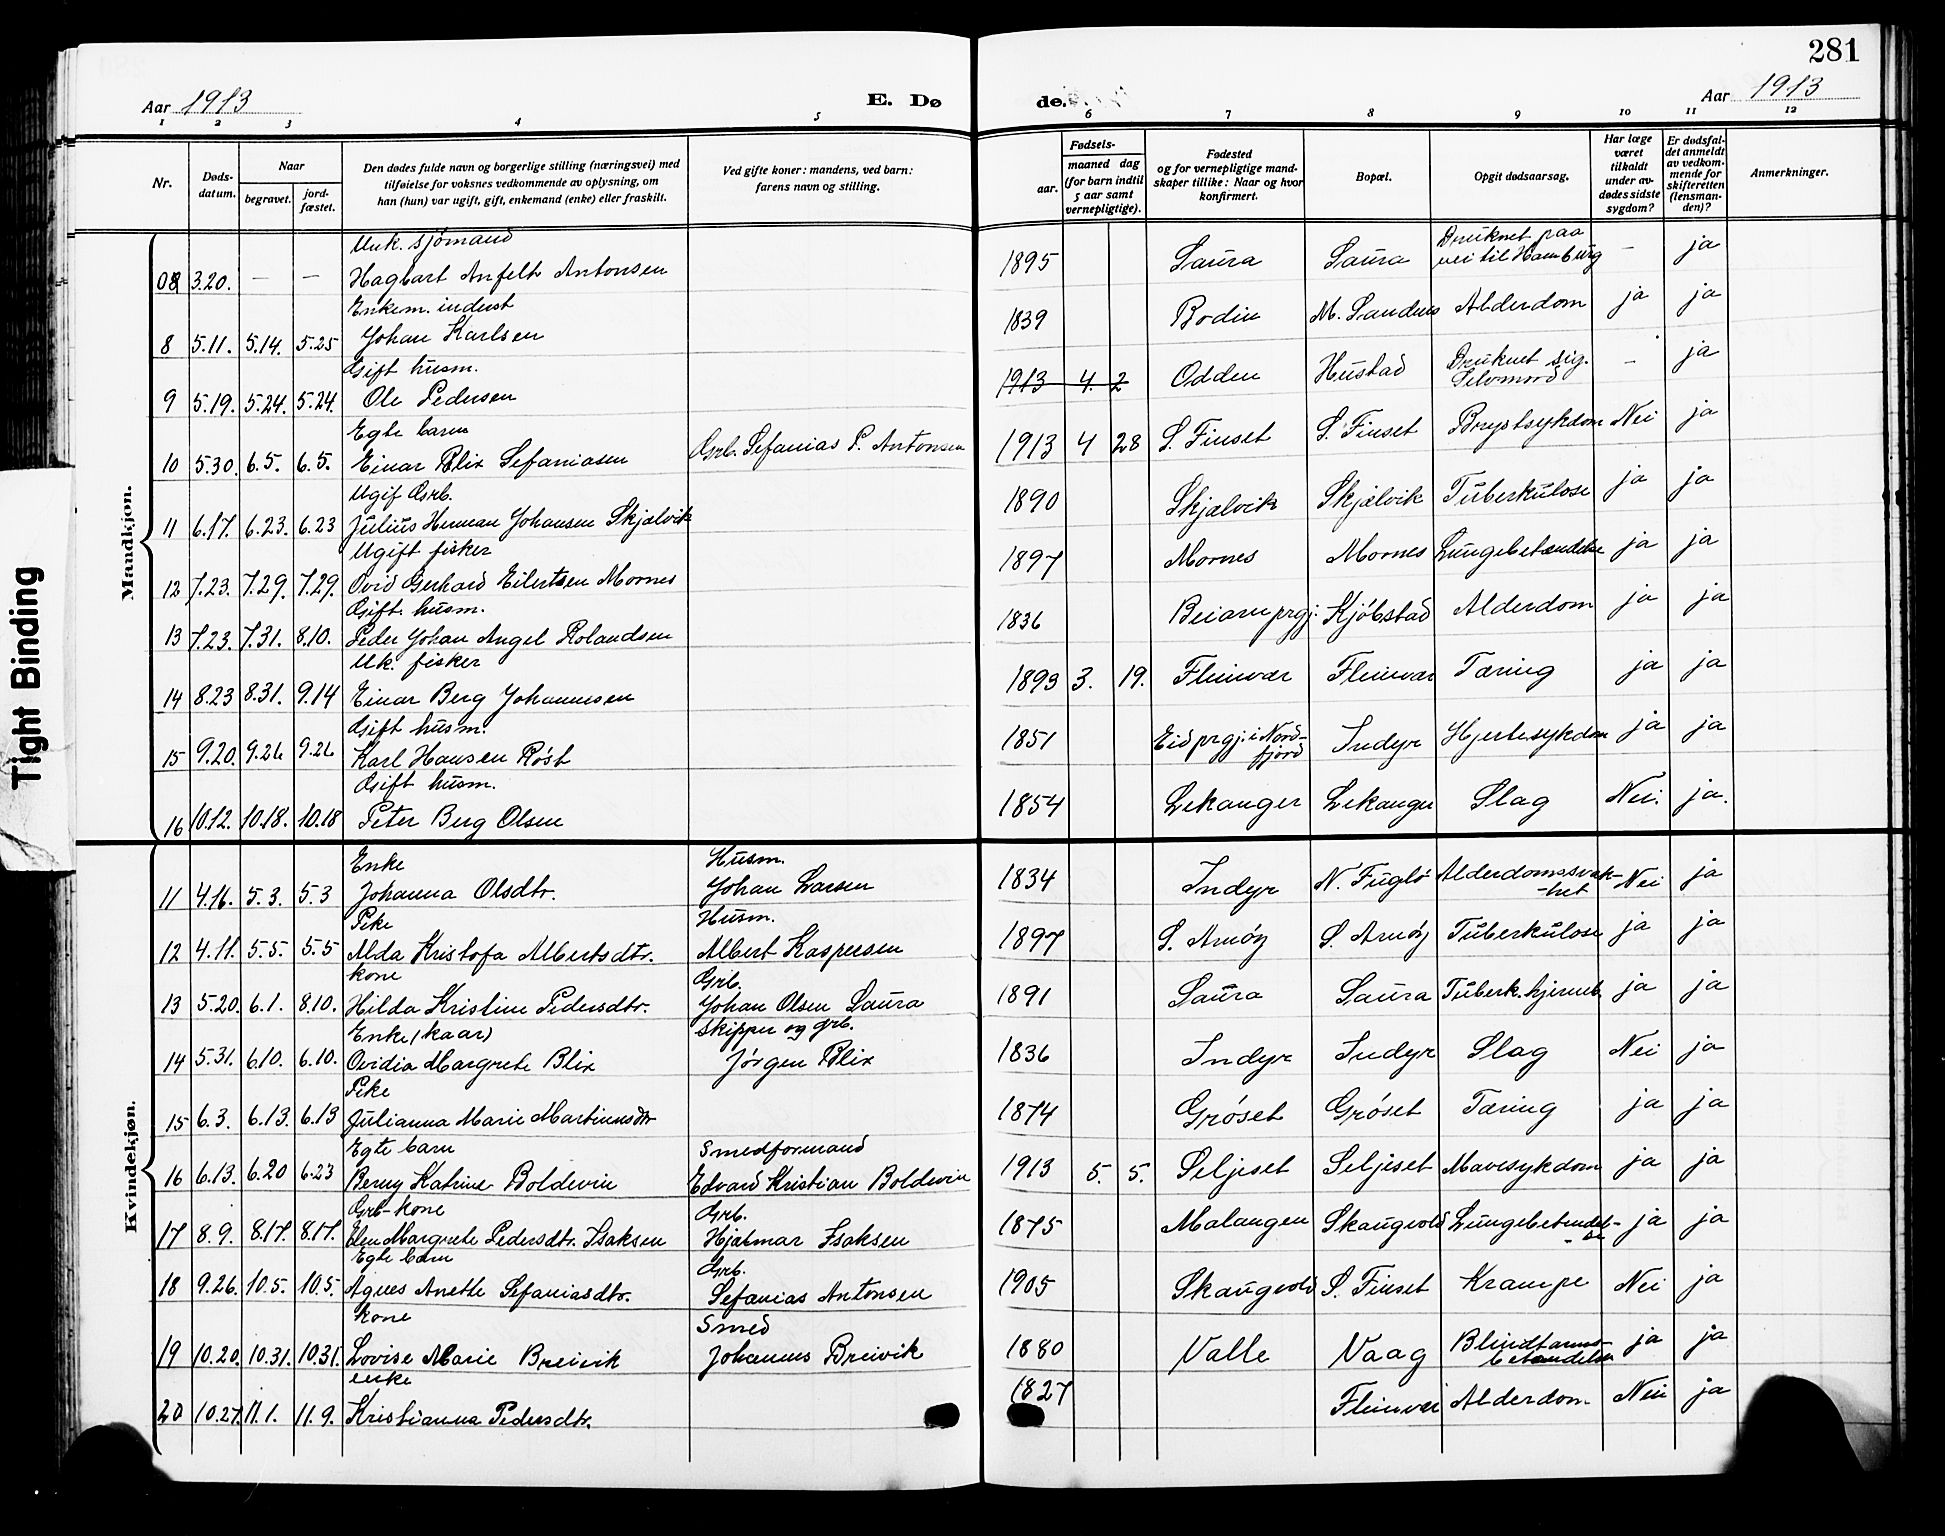 281
Aar 1913
E. Dø
de.
Aar 1913
1 2 3 4 5 6 7 8 9 10 11 12
Nr.
Døds-
datum.
Naar
begravet.
jord-
fæstet.
Den dødes fulde navn og borgerlige stilling (næringsvei) med
tilføielse for voksnes vedkommende av oplysning, om
han (hun) var ugift, gift, enkemand (enke) eller fraskilt.
Ved gifte koner: mandens, ved barn:
farens navn og stilling.
Fødsels-
aar.
maaned dag
(for barn indtil
5 aar samt
vernepligtige).
Fødested
og for vernepligtige mand-
skaper tillike: Naar og hvor
konfirmert.
Bopæl.
Opgit dødsaarsag.
Har læge
været
tilkaldt
under av-
dødes sidste
sygdom?
Er dødsfal-
det anmeldt
av vedkom-
mende for
skifteretten
(lensman-
den)?
Anmerkninger.
Tight Binding
Mandkjøn.
Unk. sjømand
08 3.20. — — Hagbart Anfelt Antonsen 1895 Saura Saura Druknet paa vei til Hamburg — ja
Enkem. inderst
8 5.11. 5.14. 5.25 Johan Karlsen 1839 Bodin M. Sandnes Alderdom ja ja
Gift husm.
9 5.19. 5.24. 5.24. Ole Pedersen 1913 4. 2 Odden Hustad Druknet sig. Selvmord — ja
Egte barn
10 5.30. 6.5. 6.5. Einar Blix Sefaniasen Grb. Sefanias P. Antonsen 1913 4 28 S. Finset S. Finset Brystsykdom Nei ja
Ugif Grb.
11 6.17. 6.23. 6.23 Julius Herman Johansen Skjælvik 1890 Skjælvik Skjælvik Tuberkulose ja ja
Ugift fisker
12 7.23. 7.29. 7.29. Ovid Gerhard Eilertsen Mornes 1897 Mornes Mornes Lungebetændelse ja ja
Gift husm.
13 7.23. 7.31. 8.10. Peder Johan Angel Rolandsen 1836 Beiarn prgj. Kjøbstad Alderdom ja ja
Uk. fisker
14 8.23 8.31. 9.14 Einar Berg Johannesen 1893 3. 19. Fleinvær Fleinvær Tæring ja ja
Gift husm.
15 9.20. 9.26 9.26 Karl Hansen Røst 1851 Eid prgj. i Nord-fjord Indyr Hjertesykdom ja ja
Gift husm.
16 10.12. 10.18. 10.18 Peter Berg Olsen 1854 Lekanger Lekanger Slag Nei. ja.
Kvindekjøn.
Enke Husm.
11 4.16. 5.3. 5.3 Johanna Olsdtr. Johan Larsen 1834 Indyr N. Fuglø Alderdomssvak-het Nei ja
Pike Husm.
12 4.11. 5.5. 5.5 Alda Kristofa Albertsdtr. Albert Kaspersen 1897 S. Arnøy S. Arnøy Tuberkulose ja ja
kone Grb.
13 5.20. 6.1. 8.10. Hilda Kristine Pedersdtr. Johan Olsen Saura 1891 Saura Saura Tuberk. hjerneb. ja ja
Enke (kaar) skipper og grb.
14 5.31. 6.10. 6.10. Ovidia Margrete Blix Jørgen Blix 1836 Indyr Indyr Slag Nei ja
Pike
15 6.3. 6.13. 6.13 Julianna Marie Martinusdtr 1874 Grøset Grøset Tæring ja ja
Egte barn Smedformand
16 6.13. 6.20 6.23 Berny Katrine Boldevin Edvard Kristian Boldevin 1913 5. 5. Seljeset Seljeset Mavesykdom ja ja
Grb-kone Grb.
17 8.9. 8.17. 8.17. Elen Margrete Pedersdtr. Isaksen Hjalmar Isaksen 1875 Malangen Skaugvold Lungebetændel-se ja ja
Egte barn Grb.
18 9.26. 10.5. 10.5. Agnes Anette Sefaniasdtr. Sefanias Antonsen 1905 Skaugvold S. Finset Krampe Nei ja
kone Smed
19 10.20. 10.31. 10.31. Lovise Marie Breivik Johannes Breivik 1880 Valle Vaag Blindtarms-betændelse ja ja
enke
20 10.27. 11.1. 11.9. Kristianna Pedersdtr. 1827 Fleinvær Alderdom Nei ja